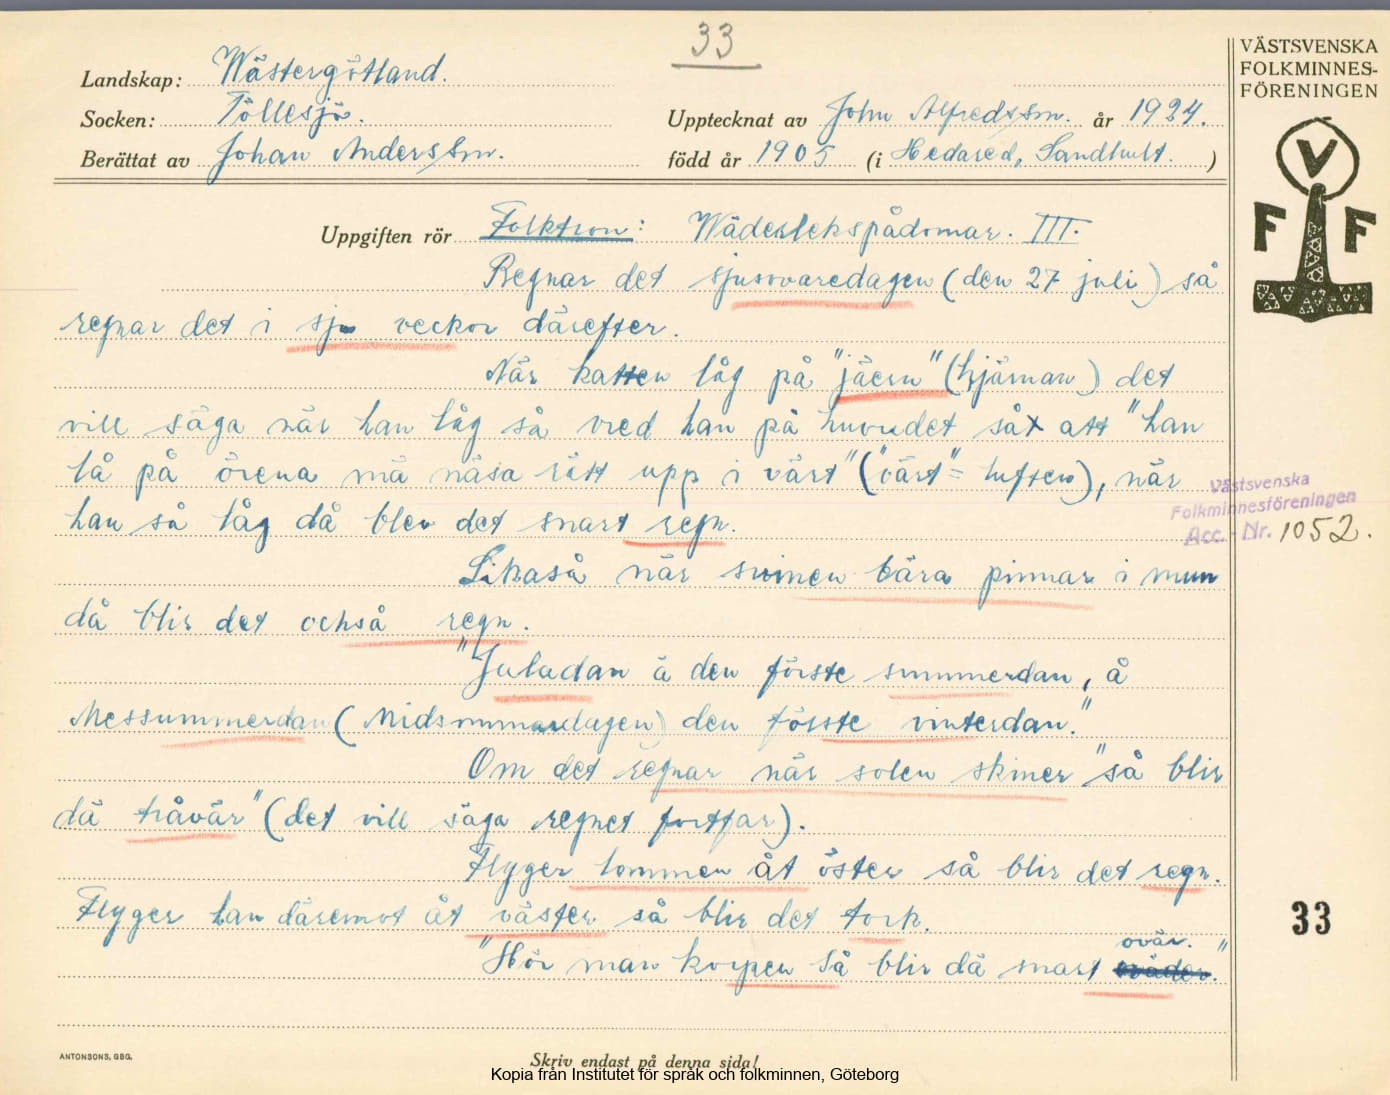 33
Landskap: Wästergötland.
Socken: Töllesjö.
Berättat av Johan Andersson.
Upptecknat av John Alfredsson. år 1924.
född år 1905 (i Hedared, Sandhult.)
VÄSTSVENSKA
FOLKMINNES-
FÖRENINGEN
V
F F
Uppgiften rör Folktron: Wäderlekspådomar. III.
Regnar det sjusovaredagen (den 27 juli) så
regnar det i sju veckor därefter.
När katten låg på "jäern" (hjärnan) det
vill säga när han låg så vred han på huvudet så att "han
lå på örena mä näsa rätt upp i värt" ("värt" = luften), när
han så låg då blev det snart regn.
Likaså när svinen bära pinnar i mun
då blir det också regn.
"Juladan ä den förste summerdan, å
Messummerdan (Midsommardagen) den förste vinterdan."
Om det regnar när solen skiner "så blir
dä tråvär" (det vill säga regnet fortfar).
Flyger lommen åt öster så blir det regn.
Flyger han däremot åt väster så blir det tork.
"Hör man korpen så blir dä snart oväder. ovär."
Västsvenska
Folkminnesföreningen
Acc. - Nr. 1052.
33
ANTONSONS, GBG.
Skriv endast på denna sida!
Kopia från Institutet för språk och folkminnen, Göteborg